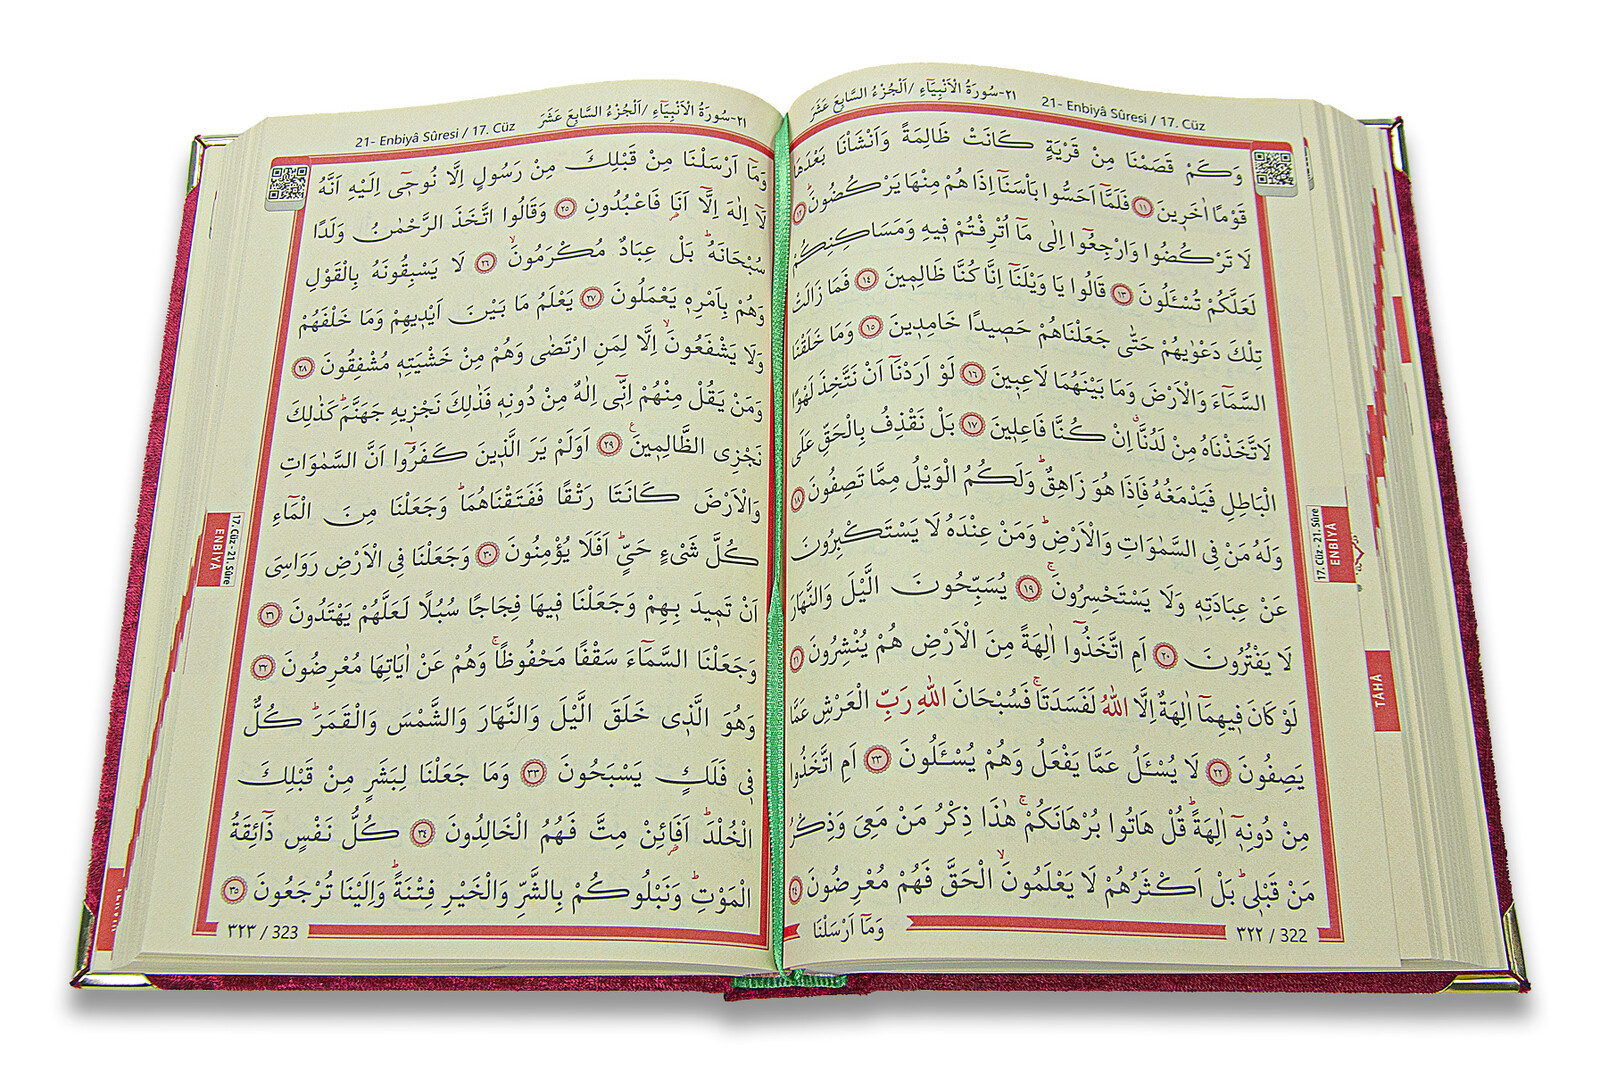 ٢١-سُورَةُ الْاَنْبِيَاءِ /اَلْجُزْءُ السَّابِعَ عَشَرَ 21- Enbiyâ Sûresi / 17. Cüz
وَكَمْ قَصَمْنَا مِنْ قَرْيَةٍ كَانَتْ ظَالِمَةً وَاَنْشَأْنَا بَعْدَهَا
قَوْمًا اٰخَرٖينَ ﴿١١﴾ فَلَمَّٓا اَحَسُّوا بَأْسَنَٓا اِذَا هُمْ مِنْهَا يَرْكُضُونَؕ ﴿١٢﴾
لَا تَرْكُضُوا وَارْجِعُٓوا اِلٰى مَٓا اُتْرِفْتُمْ فٖيهِ وَمَسَاكِنِكُمْ
لَعَلَّكُمْ تُسْـَٔلُونَ ﴿١٣﴾ قَالُوا يَا وَيْلَنَٓا اِنَّا كُنَّا ظَالِمٖينَ ﴿١٤﴾ فَمَا زَالَتْ
تِلْكَ دَعْوٰيهُمْ حَتّٰى جَعَلْنَاهُمْ حَصٖيدًا خَامِدٖينَ ﴿١٥﴾ وَمَا خَلَقْنَا
السَّمَٓاءَ وَالْاَرْضَ وَمَا بَيْنَهُمَا لَاعِبٖينَ ﴿١٦﴾ لَوْ اَرَدْنَٓا اَنْ نَتَّخِذَ لَهْوًا
لَاتَّخَذْنَاهُ مِنْ لَدُنَّاۗ اِنْ كُنَّا فَاعِلٖينَ ﴿١٧﴾ بَلْ نَقْذِفُ بِالْحَقِّ عَلَى
الْبَاطِلِ فَيَدْمَغُهُ فَاِذَا هُوَ زَاهِقٌؕ وَلَكُمُ الْوَيْلُ مِمَّا تَصِفُونَ ﴿١٨﴾
وَلَهُ مَنْ فِي السَّمٰوَاتِ وَالْاَرْضِؕ وَمَنْ عِنْدَهُ لَا يَسْتَكْبِرُونَ
عَنْ عِبَادَتِهٖ وَلَا يَسْتَحْسِرُونَۚ ﴿١٩﴾ يُسَبِّحُونَ الَّيْلَ وَالنَّهَارَ
لَا يَفْتُرُونَ ﴿٢٠﴾ اَمِ اتَّخَذُٓوا اٰلِهَةً مِنَ الْاَرْضِ هُمْ يُنْشِرُونَ ﴿٢١﴾
لَوْ كَانَ فٖيهِمَٓا اٰلِهَةٌ اِلَّا اللّٰهُ لَفَسَدَتَاۚ فَسُبْحَانَ اللّٰهِ رَبِّ الْعَرْشِ عَمَّا
يَصِفُونَ ﴿٢٢﴾ لَا يُسْـَٔلُ عَمَّا يَفْعَلُ وَهُمْ يُسْـَٔلُونَ ﴿٢٣﴾ اَمِ اتَّخَذُوا
مِنْ دُونِهٖٓ اٰلِهَةًؕ قُلْ هَاتُوا بُرْهَانَكُمْۚ هٰذَا ذِكْرُ مَنْ مَعِيَ وَذِكْرُ
مَنْ قَبْلٖيؕ بَلْ اَكْثَرُهُمْ لَا يَعْلَمُونَۙ الْحَقَّ فَهُمْ مُعْرِضُونَ ﴿٢٤﴾
٣٢٢ / 322
وَمَٓا اَرْسَلْنَا
17. Cüz - 21. Sûre
ENBİYÂ
TAHÂ
21- Enbiyâ Sûresi / 17. Cüz ٢١-سُورَةُ الْاَنْبِيَاءِ /اَلْجُزْءُ السَّابِعَ عَشَرَ
وَمَٓا اَرْسَلْنَا مِنْ قَبْلِكَ مِنْ رَسُولٍ اِلَّا نُوحٖٓي اِلَيْهِ اَنَّهُ
لَٓا اِلٰهَ اِلَّٓا اَنَا فَاعْبُدُونِ ﴿٢٥﴾ وَقَالُوا اتَّخَذَ الرَّحْمٰنُ وَلَدًا
سُبْحَانَهُؕ بَلْ عِبَادٌ مُكْرَمُونَۙ ﴿٢٦﴾ لَا يَسْبِقُونَهُ بِالْقَوْلِ
وَهُمْ بِاَمْرِهٖ يَعْمَلُونَ ﴿٢٧﴾ يَعْلَمُ مَا بَيْنَ اَيْدٖيهِمْ وَمَا خَلْفَهُمْ
وَلَا يَشْفَعُونَۙ اِلَّا لِمَنِ ارْتَضٰى وَهُمْ مِنْ خَشْيَتِهٖ مُشْفِقُونَ ﴿٢٨﴾
وَمَنْ يَقُلْ مِنْهُمْ اِنّٖٓي اِلٰهٌ مِنْ دُونِهٖ فَذٰلِكَ نَجْزٖيهِ جَهَنَّمَؕ كَذٰلِكَ
نَجْزِي الظَّالِمٖينَࣖ ﴿٢٩﴾ اَوَلَمْ يَرَ الَّذٖينَ كَفَرُٓوا اَنَّ السَّمٰوَاتِ
وَالْاَرْضَ كَانَتَا رَتْقًا فَفَتَقْنَاهُمَاؕ وَجَعَلْنَا مِنَ الْمَٓاءِ
كُلَّ شَيْءٍ حَيٍّؕ اَفَلَا يُؤْمِنُونَ ﴿٣٠﴾ وَجَعَلْنَا فِي الْاَرْضِ رَوَاسِيَ
اَنْ تَمٖيدَ بِهِمْ وَجَعَلْنَا فٖيهَا فِجَاجًا سُبُلًا لَعَلَّهُمْ يَهْتَدُونَ ﴿٣١﴾
وَجَعَلْنَا السَّمَٓاءَ سَقْفًا مَحْفُوظًاۚ وَهُمْ عَنْ اٰيَاتِهَا مُعْرِضُونَ ﴿٣٢﴾
وَهُوَ الَّذٖي خَلَقَ الَّيْلَ وَالنَّهَارَ وَالشَّمْسَ وَالْقَمَرَؕ كُلٌّ
فٖي فَلَكٍ يَسْبَحُونَ ﴿٣٣﴾ وَمَا جَعَلْنَا لِبَشَرٍ مِنْ قَبْلِكَ
الْخُلْدَؕ اَفَا۬ئِنْ مِتَّ فَهُمُ الْخَالِدُونَ ﴿٣٤﴾ كُلُّ نَفْسٍ ذَٓائِقَةُ
الْمَوْتِؕ وَنَبْلُوكُمْ بِالشَّرِّ وَالْخَيْرِ فِتْنَةًؕ وَاِلَيْنَا تُرْجَعُونَ ﴿٣٥﴾
٣٢٣ / 323
17. Cüz - 21. Sûre
ENBİYÂ